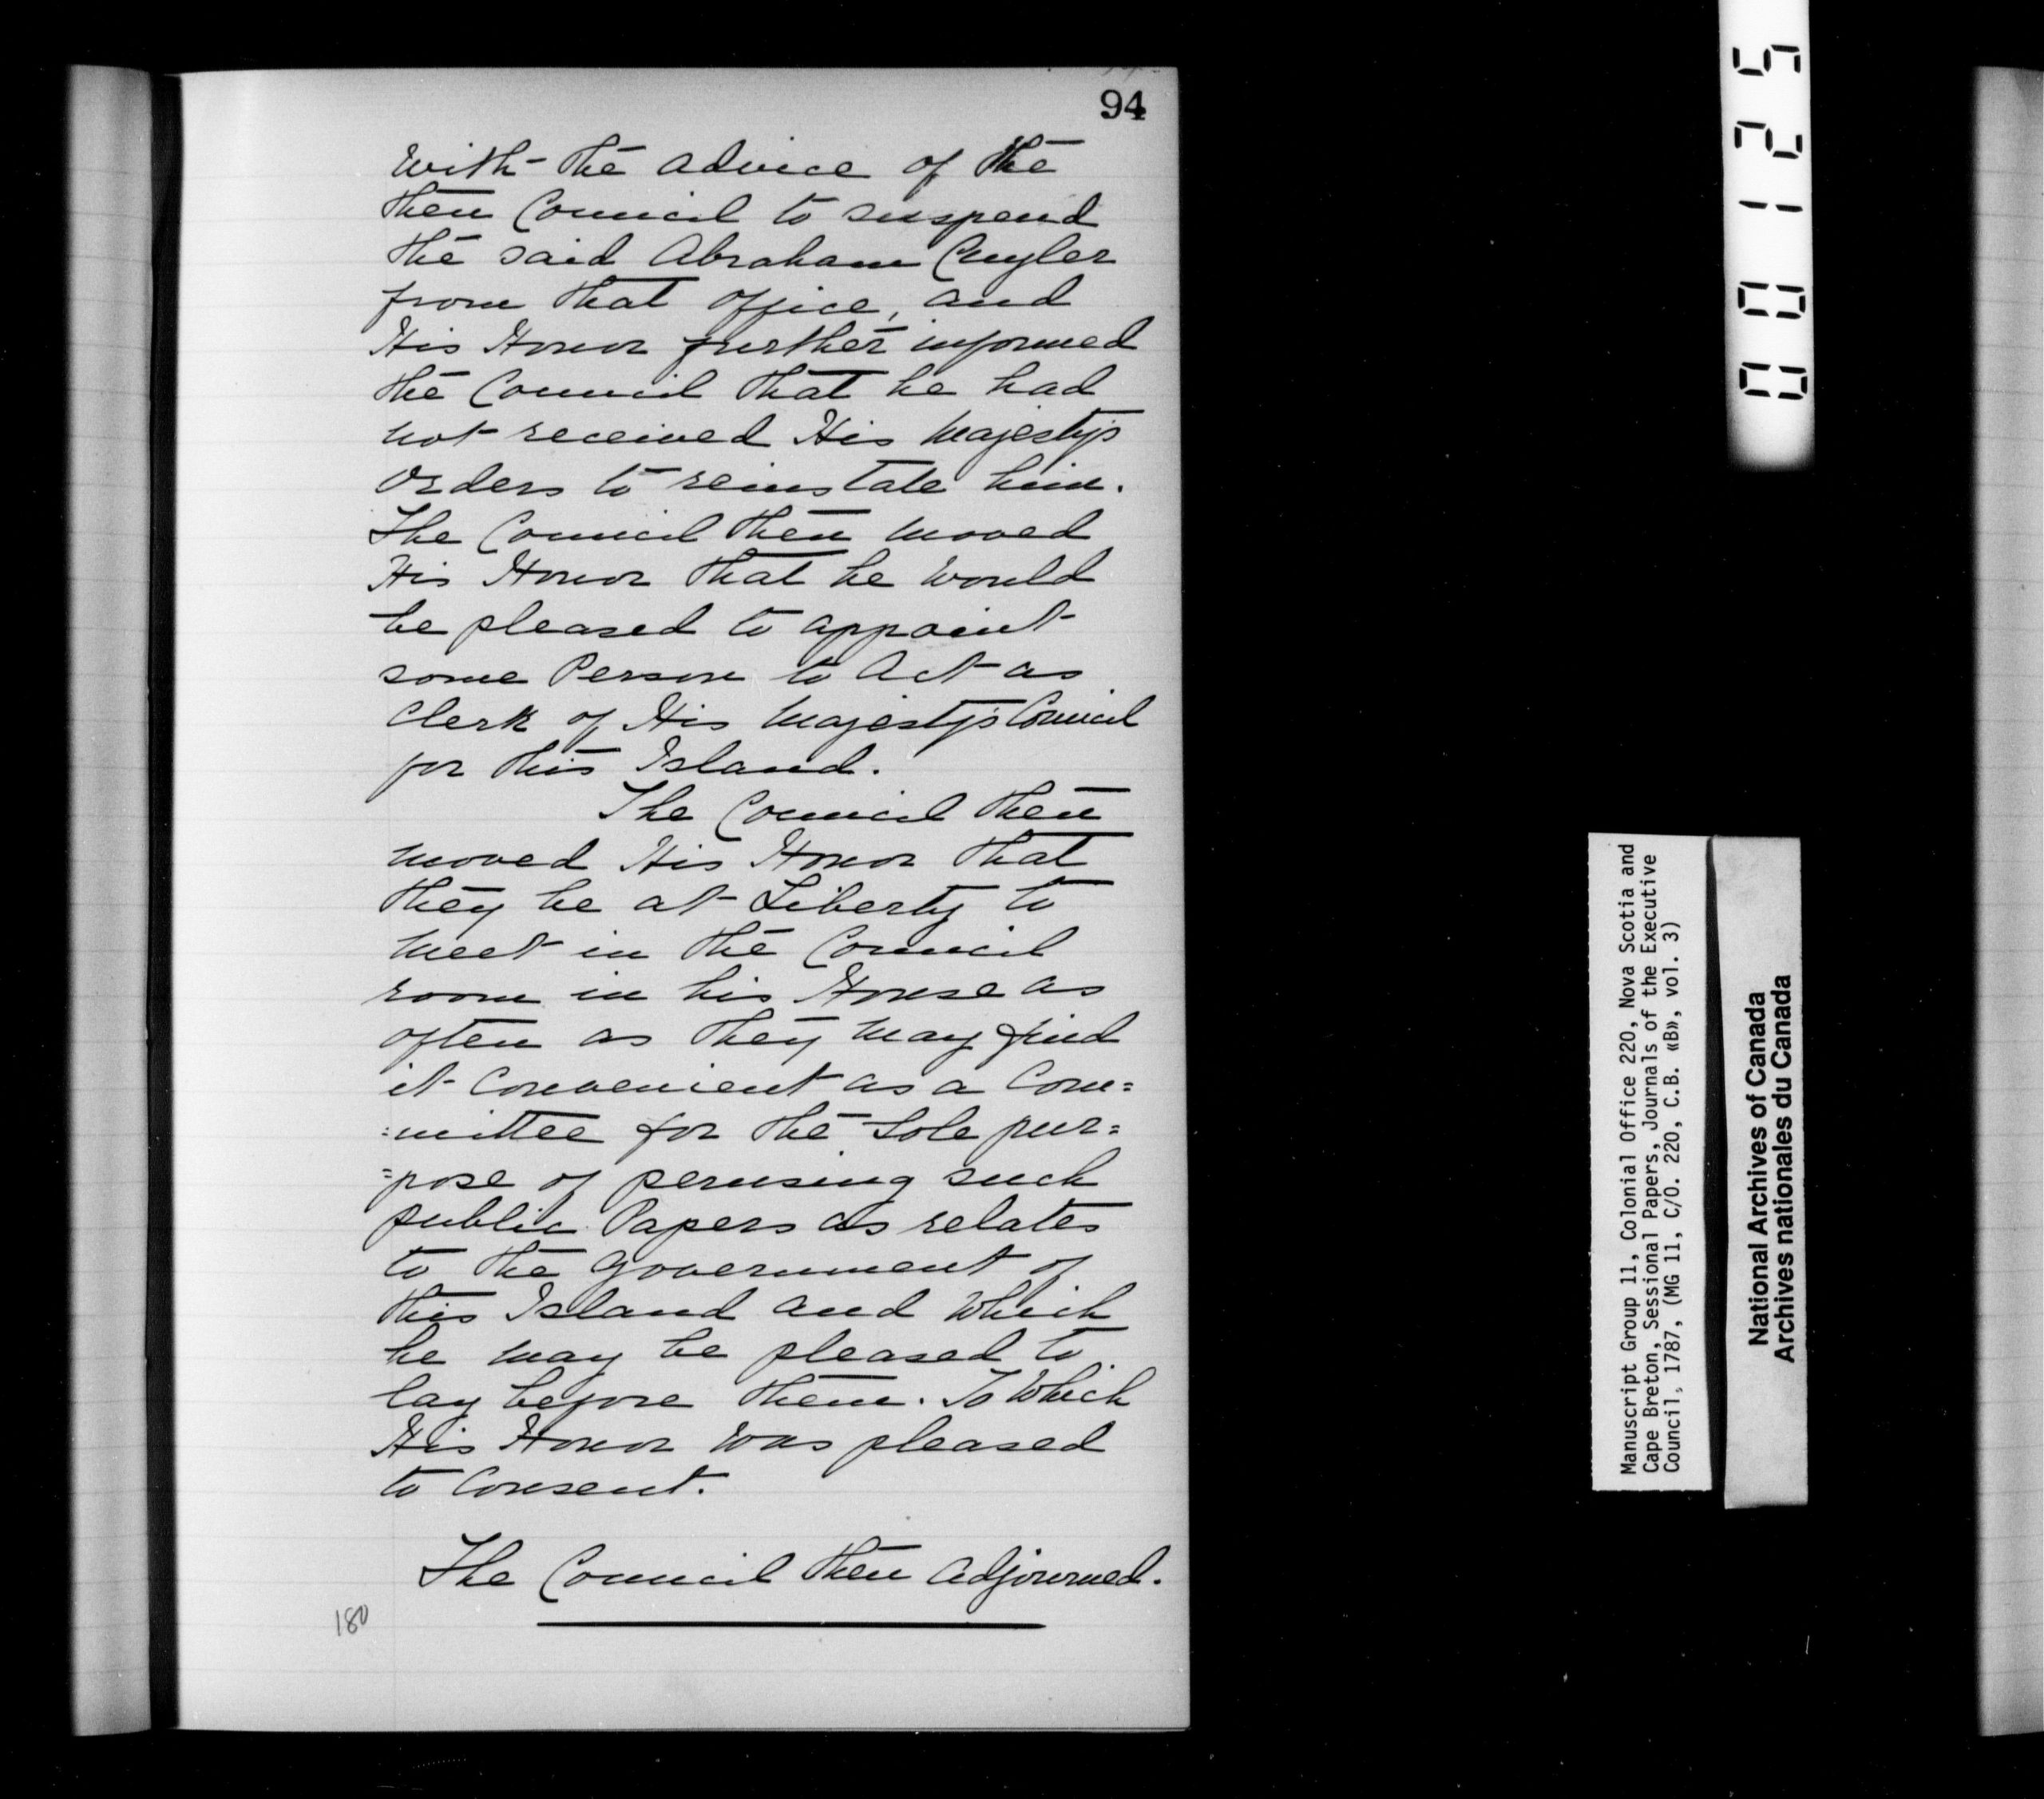 94
with the advice of the
then Council to suspend
the said Abraham Cuyler
from that office, and
His Honor further informed
the Council that he had
not received His Majesty's
Orders to reinstate him.
The Council then moved
His Honor that he would
be pleased to appoint
some Person to Act as
Clerk of His Majesty's Council
for this Island.
The Council then
moved His Honor that
they be at Liberty to
meet in the Council
room in his House as
often as they may find
it Convenient as a Com=
=mittee for the Sole pur=
=pose of perusing such
public Papers as relates
to the Government of
this Island and Which
he may be pleased to
lay before them. To Which
His Honor was pleased
to Consent.
The Council then Adjourned.
180
00125
Manuscript Group 11, Colonial Office 220, Nova Scotia and
Cape Breton, Sessional Papers, Journals of the Executive
Council, 1787, (MG 11, C/O. 220, C.B. «B», vol. 3)
National Archives of Canada
Archives nationales du Canada